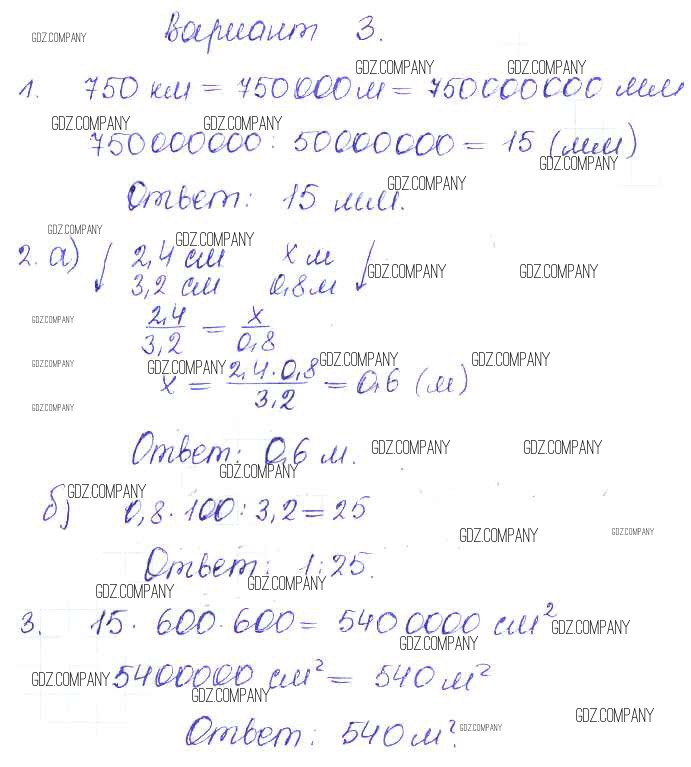 Вариант 3.
1. 750 км = 750000 м = 750000000 мм
750000000 : 50000000 = 15 (мм)
Ответ: 15 мм.
2. а) ↓ 2,4 см x м ↓
3,2 см 0,8 м
2,4/3,2 = x/0,8
x = 2,4·0,8/3,2 = 0,6 (м)
Ответ: 0,6 м.
б) 0,8·100:3,2=25
Ответ: 1:25.
3. 15·600·600= 5400000 см²
5400000 см² = 540 м²
Ответ: 540 м².
GDZ.COMPANY